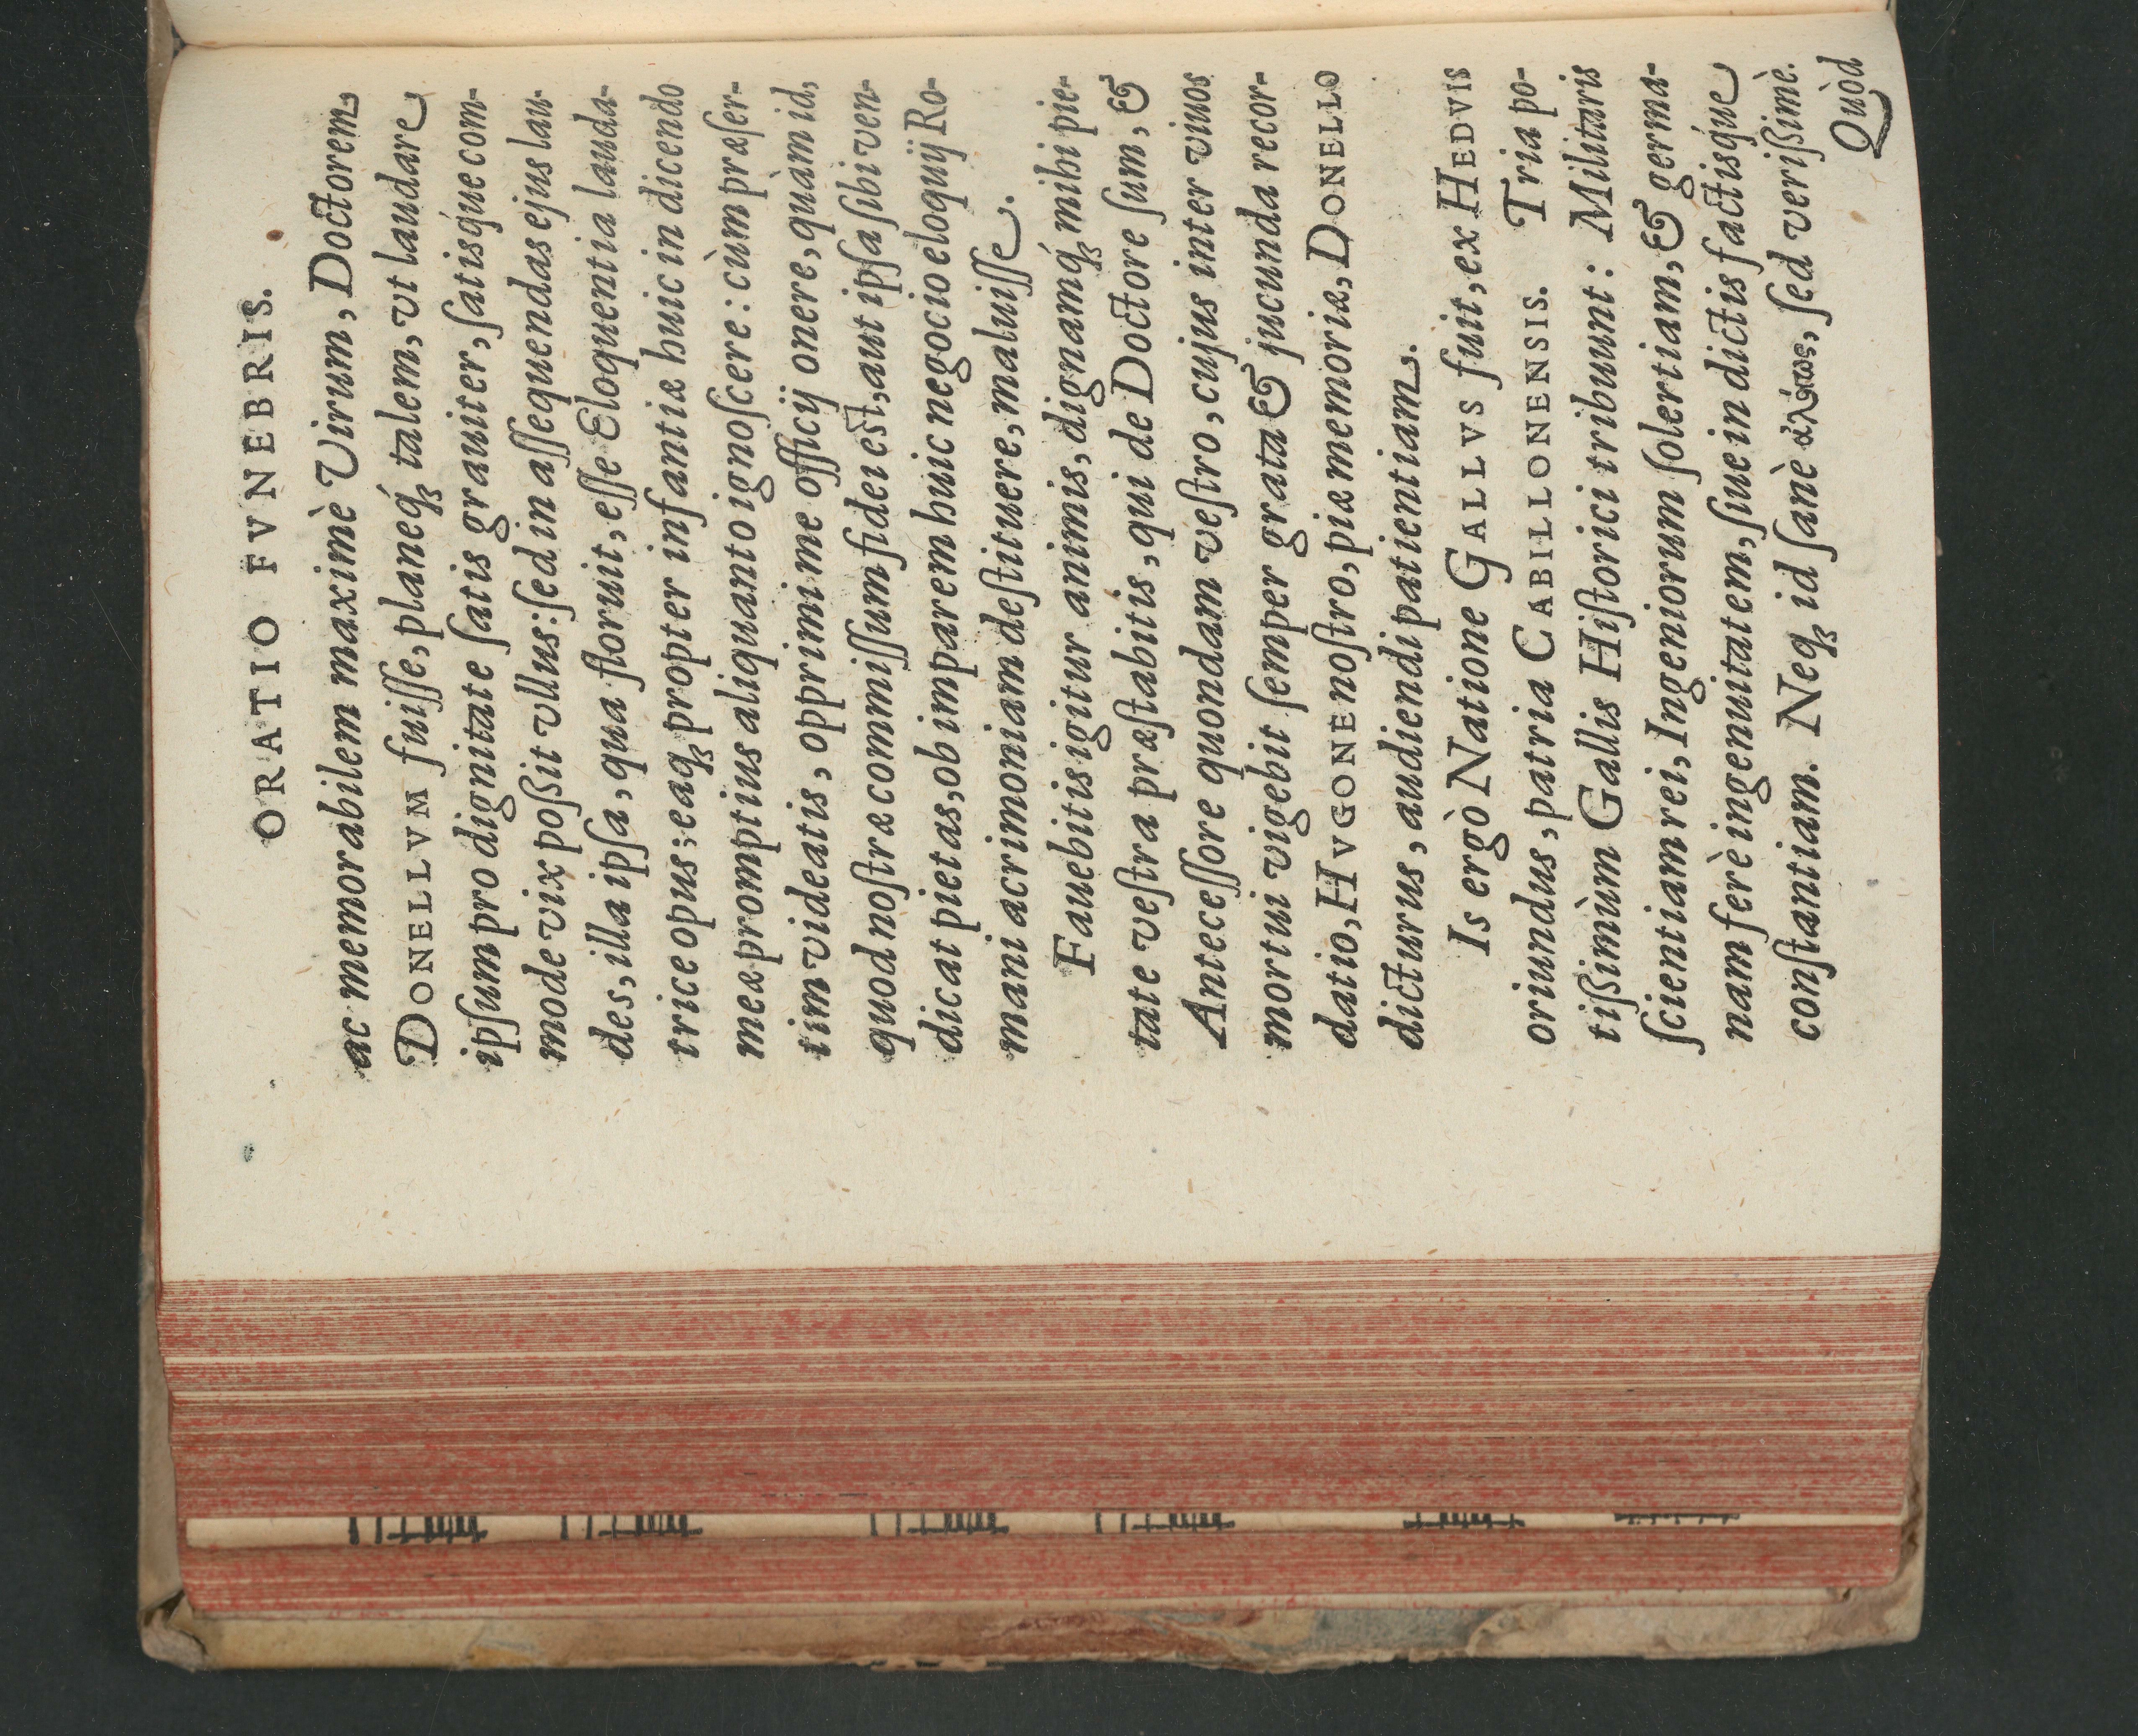 ORATIO FVNEBRIS.
ac memorabilem maximè Virum, Doctorem
DONELLVM fuiſſe, planeq́ꝫ talem, vt laudare
ipſum pro dignitate ſatis grauiter, ſatisq́ue com-
mode vix poßit vllus: ſed in aſſequendas ejus lau-
des, illa ipſa, qua floruit, eſſe Eloquentia lauda-
trice opus; eaqꝫ propter infantiæ huic in dicendo
meæ promptius aliquanto ignoſcere: cùm præſer-
tim videatis, opprimi me officij onere, quàm id,
quod noſtræ commiſſum fidei est, aut ipſa ſibi ven-
dicat pietas, ob imparem huic negocio eloquij Ro-
mani acrimoniam deſtituere, maluiſſe.
Fauebitis igitur animis, dignamq́ꝫ mihi pie-
tate veſtra præſtabitis, qui de Doctore ſum, &
Anteceſſore quondam veſtro, cujus inter viuos
mortui vigebit ſemper grata & jucunda recor-
datio, HVGONE noſtro, piæ memoriæ, DONELLO
dicturus, audiendi patientiam.
Is ergò Natione GALLVS fuit, ex HEDVIS
oriundus, patria CABILLONENSIS. Tria po-
tißimùm Gallis Hiſtorici tribuunt: Militaris
ſcientiam rei, Ingeniorum ſolertiam, & germa-
nam ferè ingenuitatem, ſiue in dictis factisq́ue
conſtantiam. Neqꝫ id ſanè ἀλόγως, ſed verißimè.
Quòd